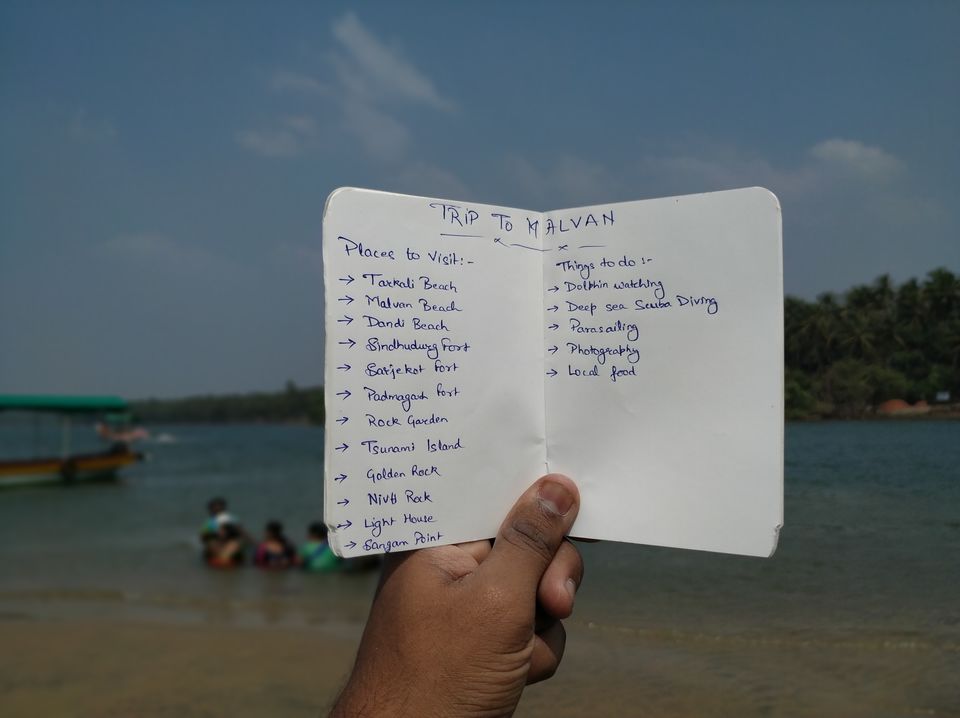 TRIP TO MALVAN
Places to Visit:-
→ Tarkali Beach
→ Malvan Beach
→ Dandi Beach
→ Sindhudurg Fort
→ Sarjekot Fort
→ Padmagash Fort
→ Rock Garden
→ Tsunami Island
→ Golden Rock
→ Rock
→ Light House
→ Sangam Point
Things to do :-
→ Dolphin watching
→ Deep sea Scuba Diving
→ Parasailing
→ Photography
→ Local food